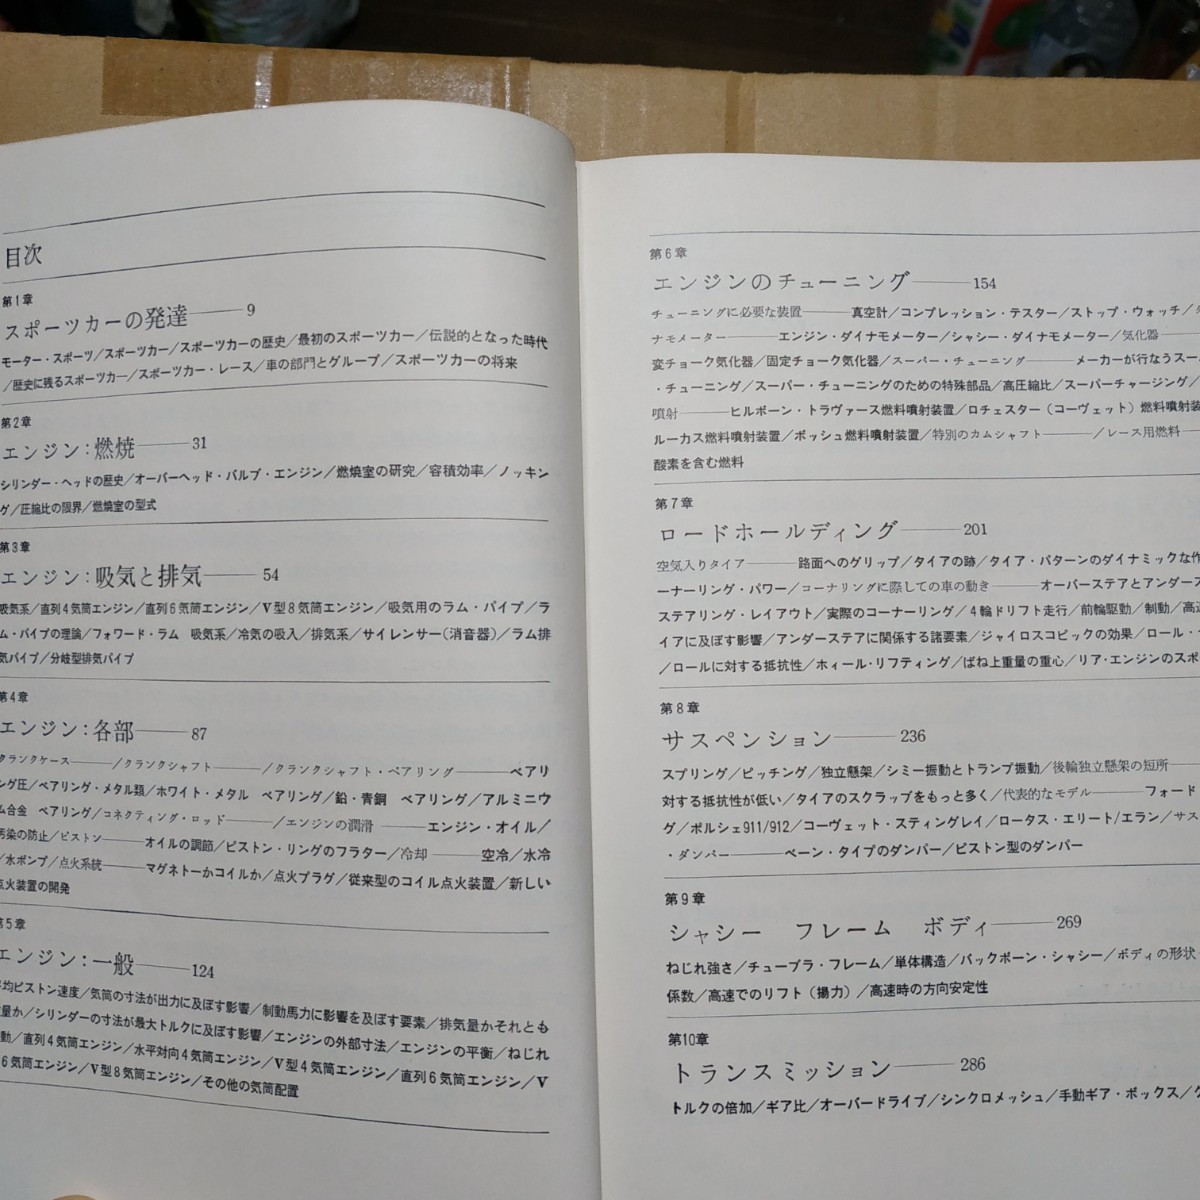 目次
第1章
スポーツカーの発達――9
モーター・スポーツ/スポーツカー/スポーツカーの歴史/最初のスポーツカー/伝説的となった時代
/歴史に残るスポーツカー/スポーツカー・レース/車の部門とグループ/スポーツカーの将来
第2章
エンジン:燃焼――31
シリンダー・ヘッドの歴史/オーバーヘッド・バルブ・エンジン/燃焼室の研究/容積効率/ノッキン
グ/圧縮比の限界/燃焼室の型式
第3章
エンジン:吸気と排気――54
吸気系/直列4気筒エンジン/直列6気筒エンジン/V型8気筒エンジン/吸気用のラム・パイプ/ラ
ム・パイプの理論/フォワード・ラム 吸気系/冷気の吸入/排気系/サイレンサー(消音器)/ラム排
気パイプ/分岐型排気パイプ
第4章
エンジン:各部――87
クランクケース――/クランクシャフト――/クランクシャフト・ベアリング――ベアリ
ング圧/ベアリング・メタル類/ホワイト・メタル ベアリング/鉛・青銅 ベアリング/アルミニウ
ム合金 ベアリング/コネクティング・ロッド――/エンジンの潤滑――エンジン・オイル/
汚染の防止/ピストン――オイルの調節/ピストン・リングのフラター/冷却――空冷/水冷
/水ポンプ/点火系統――マグネトーかコイルか/点火プラグ/従来型のコイル点火装置/新しい
点火装置の開発
第5章
エンジン:一般――124
平均ピストン速度/気筒の寸法が出力に及ぼす影響/制動馬力に影響を及ぼす要素/排気量かそれとも
量か/シリンダーの寸法が最大トルクに及ぼす影響/エンジンの外部寸法/エンジンの平衡/ねじれ
動/直列4気筒エンジン/水平対向4気筒エンジン/V型4気筒エンジン/直列6気筒エンジン/V
6気筒エンジン/V型8気筒エンジン/その他の気筒配置
第6章
エンジンのチューニング――154
チューニングに必要な装置――真空計/コンプレッション・テスター/ストップ・ウォッチ/
ナモメーター――エンジン・ダイナモメーター/シャシー・ダイナモメーター/気化器――
変チョーク気化器/固定チョーク気化器/スーパー・チューニング――メーカーが行なうスー
・チューニング/スーパー・チューニングのための特殊部品/高圧縮比/スーパーチャージング/
噴射――ヒルボーン・トラヴァース燃料噴射装置/ロチェスター(コーヴェット)燃料噴射装
ルーカス燃料噴射装置/ボッシュ燃料噴射装置/特別のカムシャフト――/レース用燃料――
酸素を含む燃料
第7章
ロードホールディング――201
空気入りタイア――路面へのグリップ/タイアの跡/タイア・パターンのダイナミックな作
ーナーリング・パワー/コーナリングに際しての車の動き――オーバーステアとアンダース
ステアリング・レイアウト/実際のコーナーリング/4輪ドリフト走行/前輪駆動/制動/高速
イアに及ぼす影響/アンダーステアに関係する諸要素/ジャイロスコピックの効果/ロール・
/ロールに対する抵抗性/ホィール・リフティング/ばね上重量の重心/リア・エンジンのスポ
第8章
サスペンション――236
スプリング/ピッチング/独立懸架/シミー振動とトランプ振動/後輪独立懸架の短所――
対する抵抗性が低い/タイアのスクラッブをもっと多く/代表的なモデル――フォード
グ/ポルシェ911/912/コーヴェット・スティングレイ/ロータス・エリート/エラン/サス
・ダンパー――ベーン・タイプのダンパー/ピストン型のダンパー
第9章
シャシー フレーム ボディ――269
ねじれ強さ/チューブラ・フレーム/単体構造/バックボーン・シャシー/ボディの形状
係数/高速でのリフト(揚力)/高速時の方向安定性
第10章
トランスミッション――286
トルクの倍加/ギア比/オーバードライブ/シンクロメッシュ/手動ギア・ボックス/